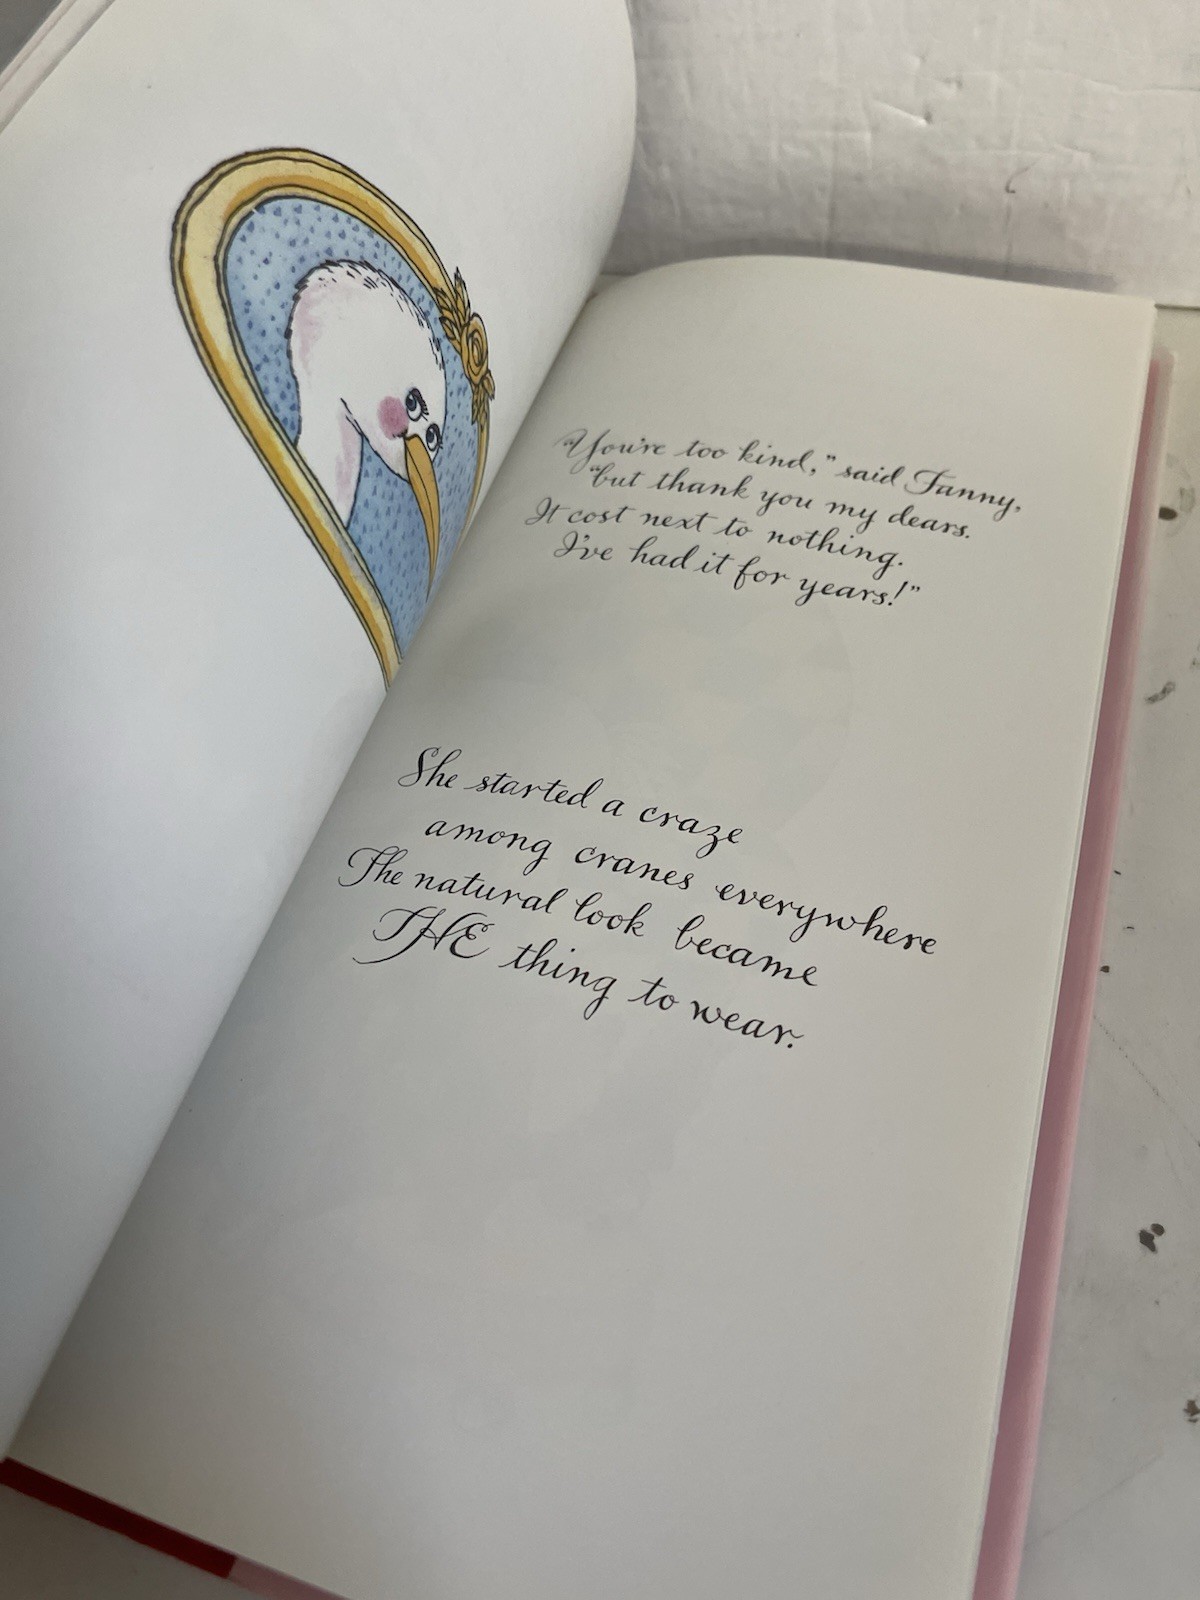 "You're too kind," said Fanny,
"but thank you my dears.
It cost next to nothing.
I've had it for years!"
She started a craze
among cranes everywhere
The natural look became
THE thing to wear.